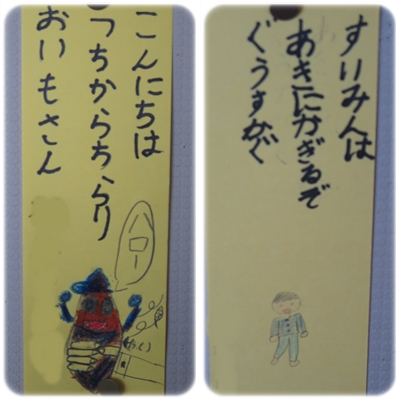 こんにちは
つちからちらり
おいもさん
ハロー
すいみんは
あきにかぎるぞ
ぐうすかぐ